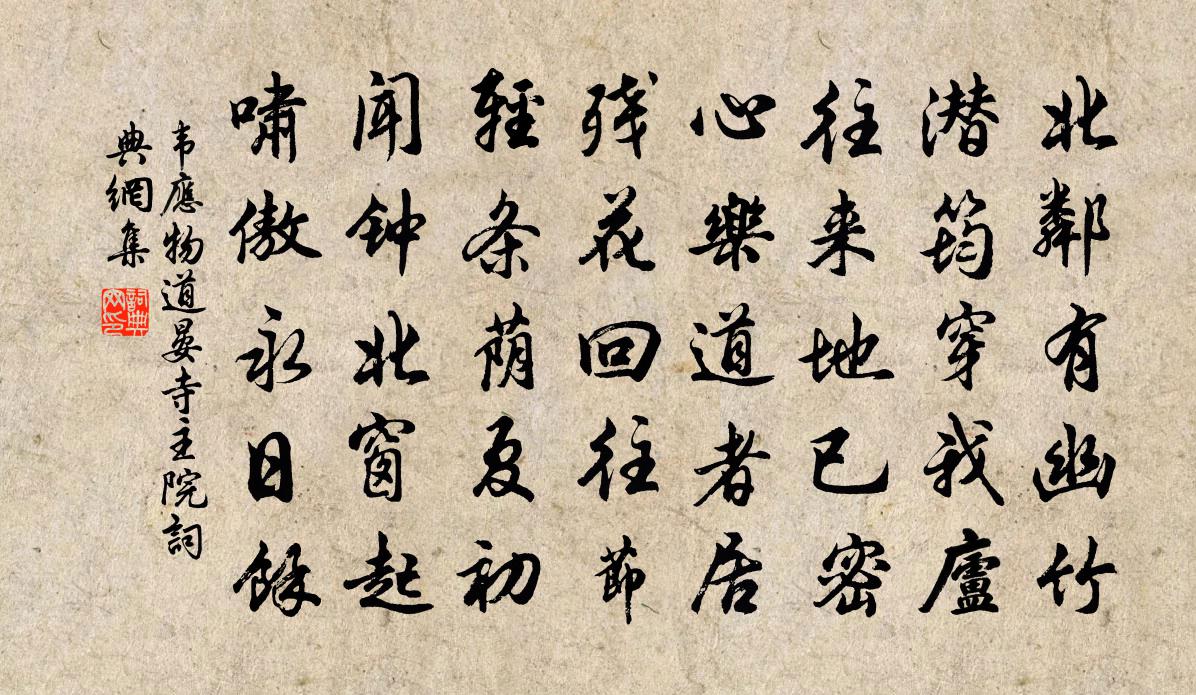 北鄰有幽竹
潜筠穿我廬
往来地已密
心樂道者居
残花回往節
輕条荫夏初
闻钟北窗起
啸傲永日餘
韦應物道晏寺主院詞
典網集
詞典
网印